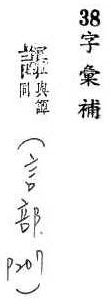 38 字彙補
與譚
同
（言部 P207）